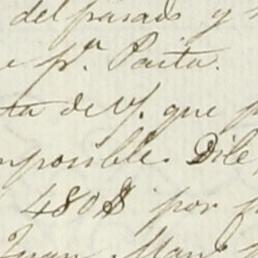 del pasado y
e pª. Paita.
ta de V. que p
mposible. Dile
480$ por p
Juan Man